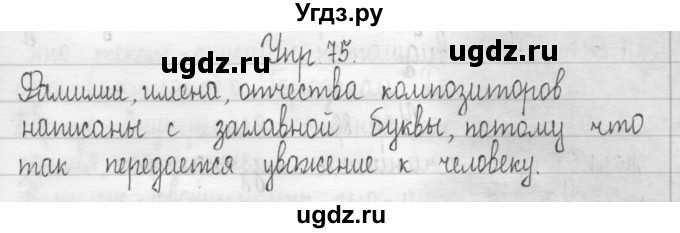 Угдз.ру
Упр 75.
ugdz.ru ugdz.ru
Фамилии, имена, отчества композиторов
написаны с заглавной буквы, потому что
так передается уважение к человеку.
ugdz.ru